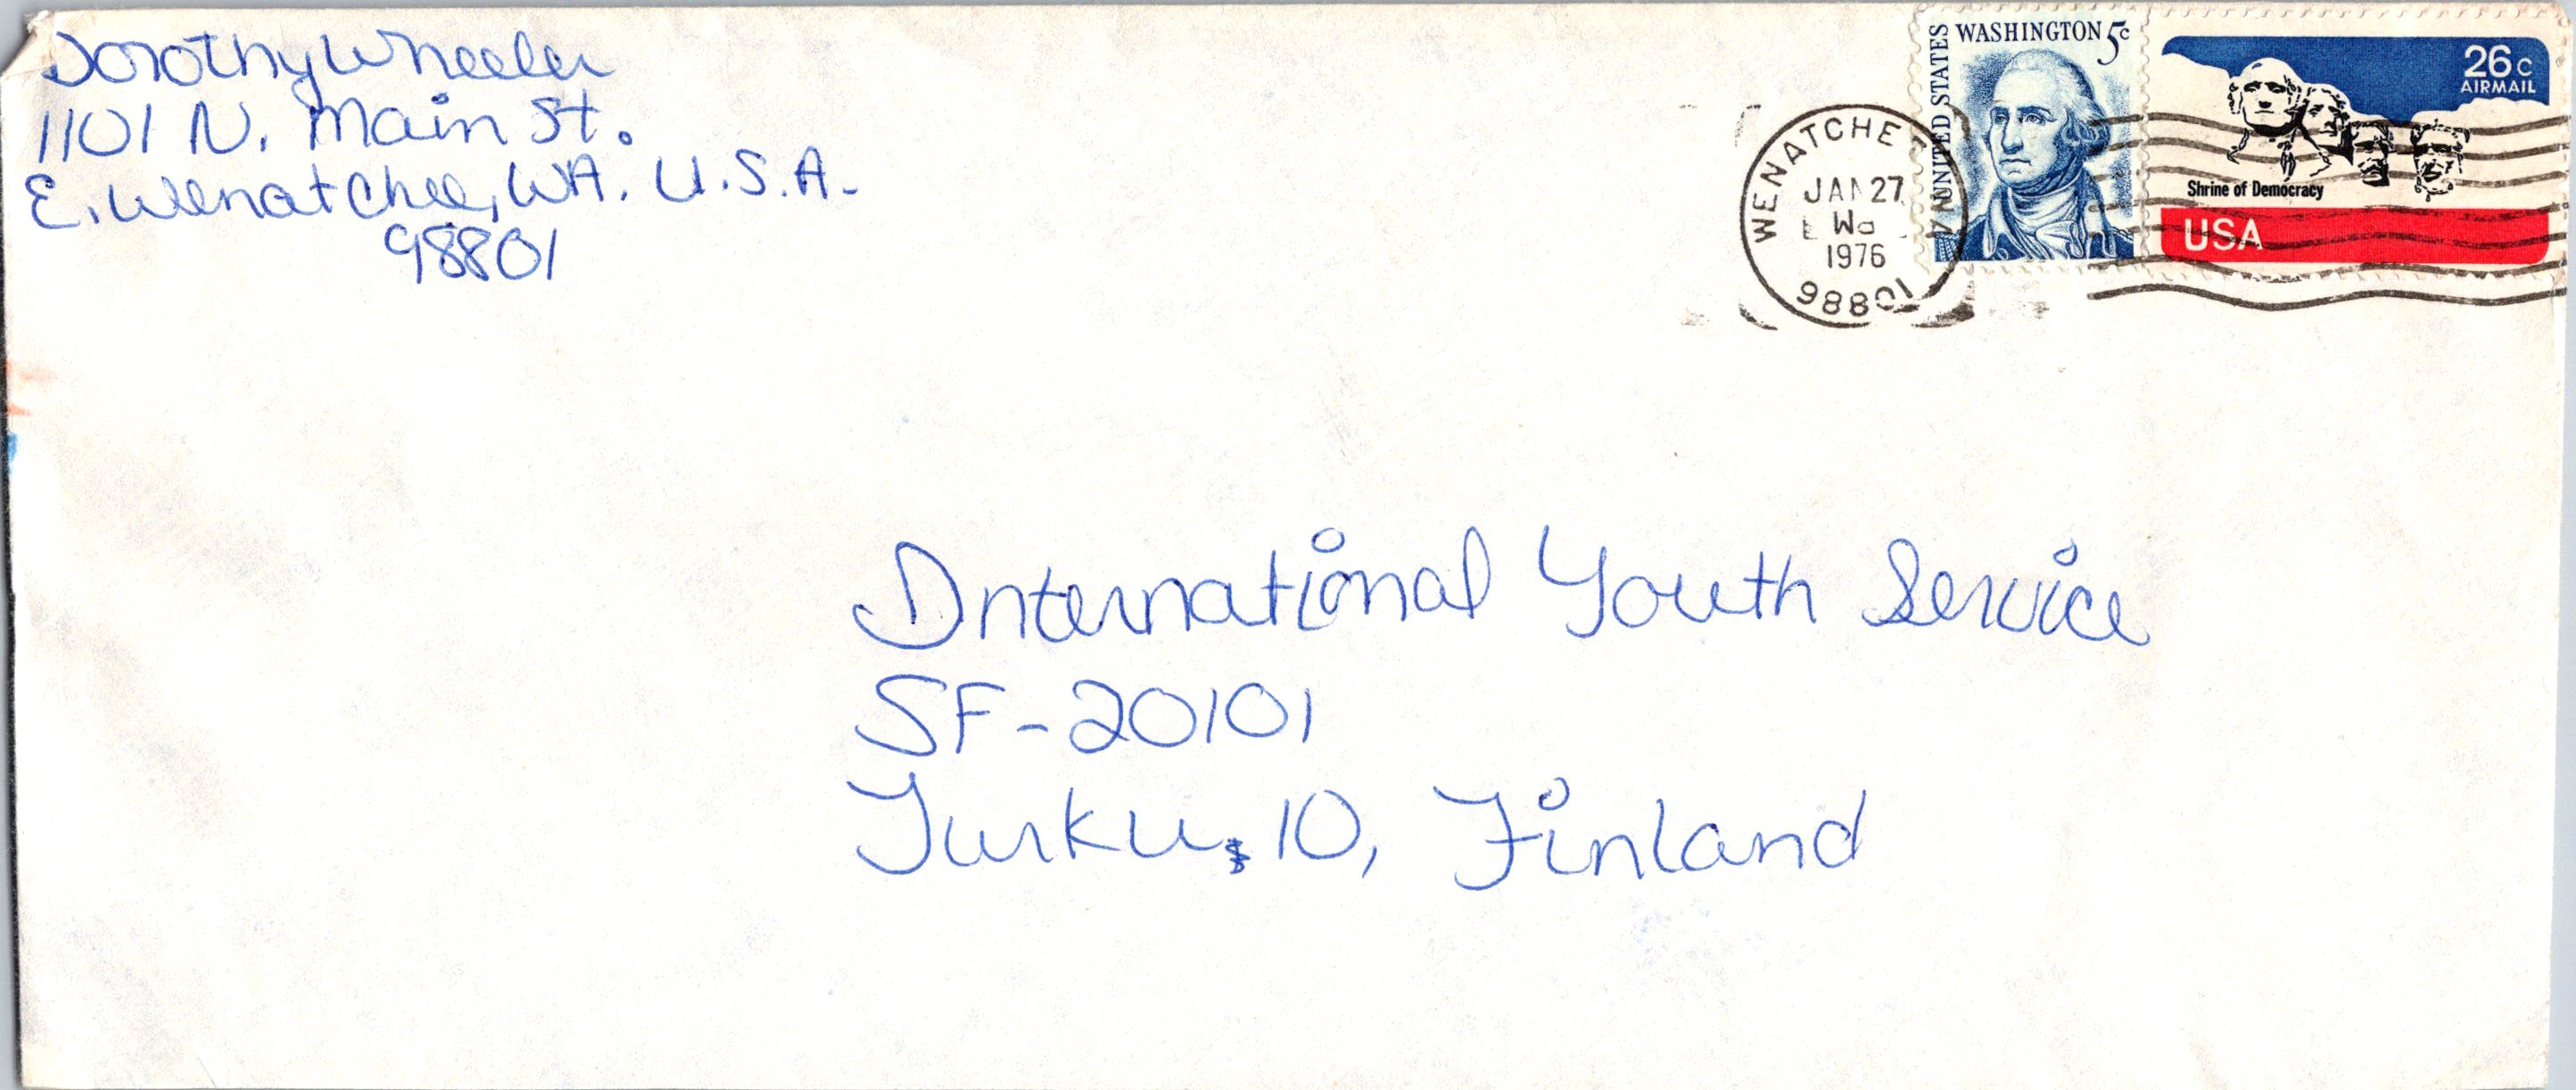 Dorothy Wheeler
1101 N. Main St.
E. Wenatchee, WA. U.S.A.
98801
WENATCHEE
JAN 27
1976
98801
WASHINGTON 5c
UNITED STATES
26c
AIRMAIL
Shrine of Democracy
USA
International Youth Service
SF-20101
Turku 10, Finland